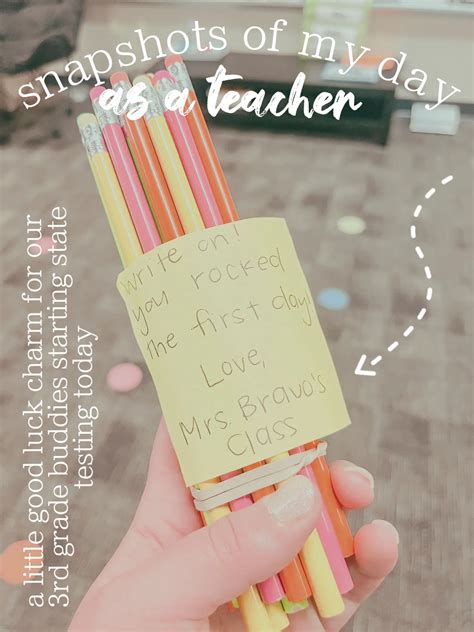 snapshots of my day
as a teacher
a little good luck charm for our
3rd grade buddies starting state
testing today
Write on!
you rocked
the first day!
Love,
Mrs. Bravo's
Class